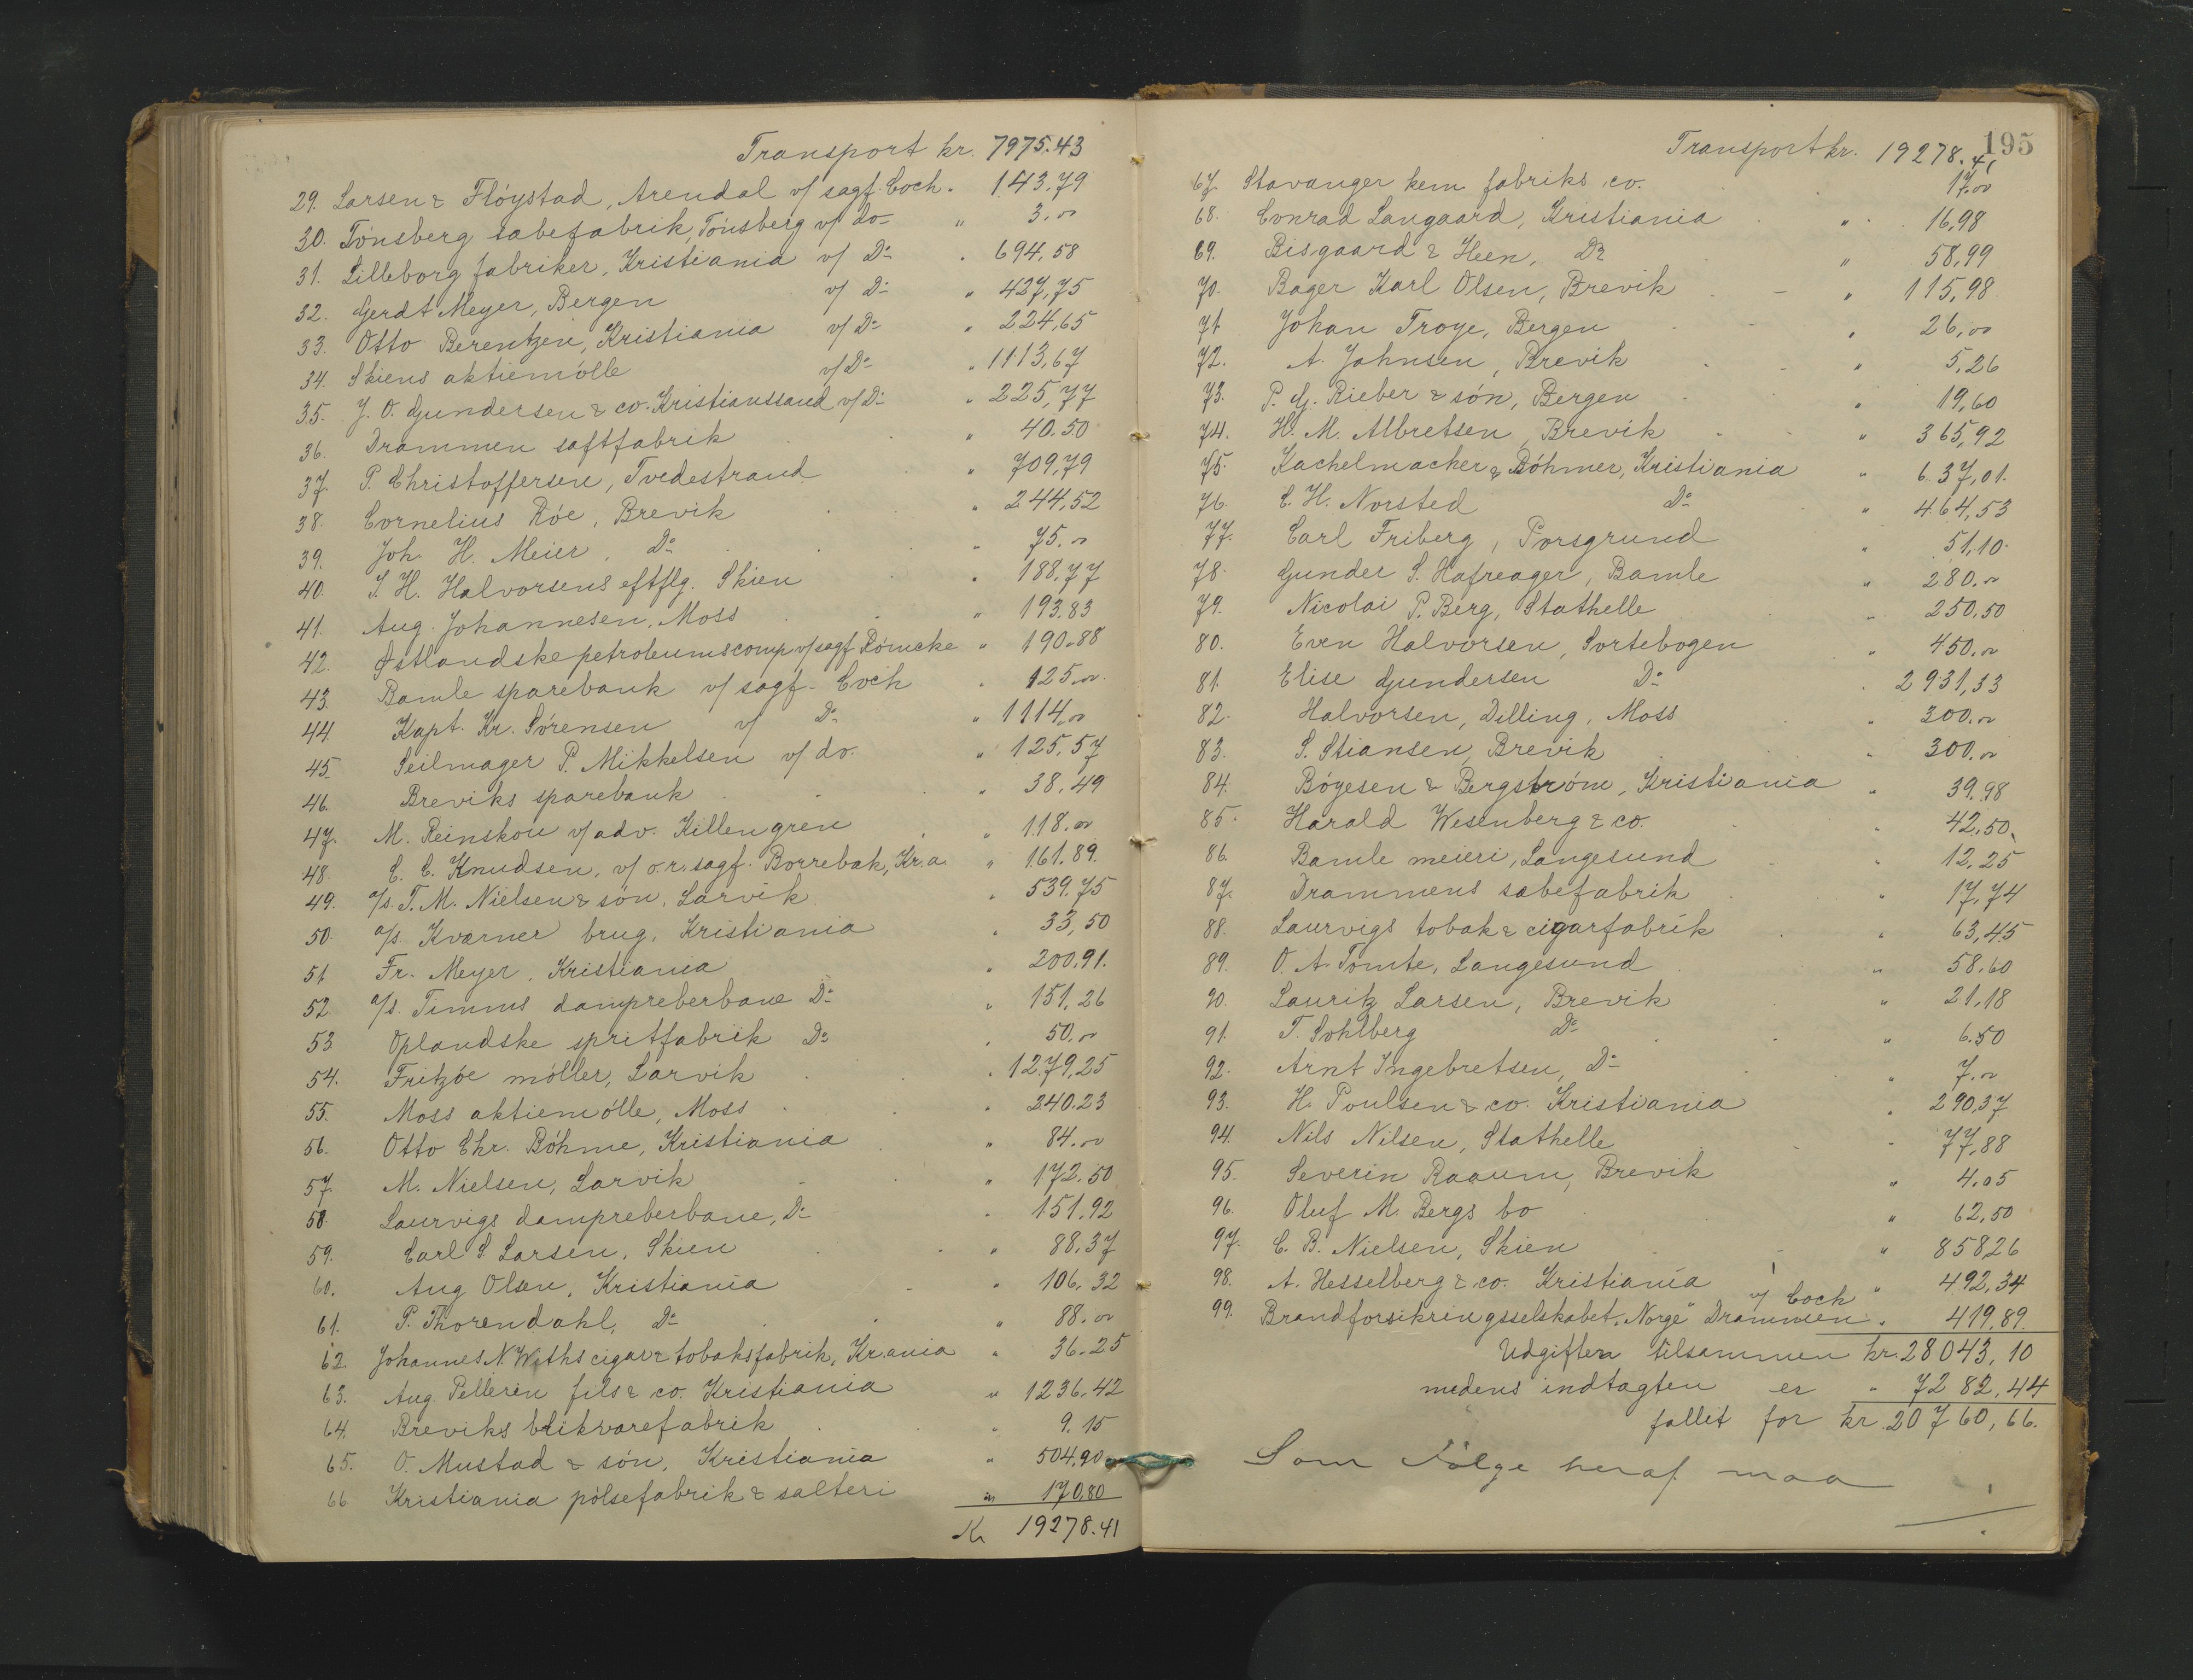 Transport kr. 7975.43
29. Larsen & Flöystad, Arendal v/ sagf. Coch. 143,79
30. Tönsberg sæbefabrik, Tönsberg v/ do " 3.00
31. Lilleborg fabriker, Kristiania v/ Do " 694,58
32. Gerdt Meyer, Bergen v/ Do " 427,75
33. Otto Berentzen, Kristiania v/ Do " 224,65
34. Skiens aktiemölle v/ Do " 1113,67
35. J. O. Gundersen & co. Kristianssand v/ Do " 225,77
36. Drammen saftfabrik " 40.50
37. P. Christoffersen, Tvedestrand " 709,79
38. Cornelius Röe, Brevik " 244,52
39. Joh. H. Meier, Do " 75.00
40. I. H. Halvorsens eftflg. Skien " 188,77
41. Aug. Johannesen, Moss " 193.83
42. Østlandske petroleumscomp v/ sagf. Römcke " 190.88
43. Bamle sparebank v/ sagf. Coch " 125,00
44. Kapt. Kr. Sörensen v/ Do " 1114,00
45. Seilmager P. Mikkelsen v/ do. " 125,57
46. Breviks sparebank " 38,49
47. M. Reinskou v/ adv. Killengren " 118.00
48. C. C. Knudsen, v/ o.r.sagf. Borrebæk, Kr.a. " 161.89.
49. a/s. T. M. Nielsen & sön, Larvik " 539.75
50. a/s. Kværner brug, Kristiania " 33,50
51. Fr. Meyer, Kristiania " 200,91.
52. a/s. Timms dampreberbane Do " 151,26
53. Oplandske spritfabrik Do " 50.00
54. Fritzöe möller, Larvik " 1279,25
55. Moss aktiemölle, Moss " 240.23
56. Otto Chr. Böhme, Kristiania " 84.00
57. M. Nielsen, Larvik " 172.50
58. Laurvigs dampreberbane, Do " 151.92
59. Carl S. Larsen, Skien " 88,37
60. Aug Olsen, Kristiania " 106.32
61. P. Thorendahl, Do " 88.00
62. Johannes N. Withs cigar & tobaksfabrik, Kr.ania " 36.25
63. Aug. Pellerin fils & co. Kristiania " 1236.42
64. Breviks blikvarefabrik " 9.15
65. O. Mustad & sön, Kristiania " 504,90
66 Kristiania pölsefabrik & salteri " 170,80
Kr 19278.41
195
Transport kr. 19278.41
67. Stavanger kem fabriks co. 17.00
68. Conrad Langaard, Kristiania " 16,98
69. Bisgaard & Heen, Do " 58,99
70. Bager Karl Olsen, Brevik " 115,98
71. Johan Troye, Bergen " 26,00
72. A. Johnsen, Brevik " 5,26
73. P. G. Rieber & sön, Bergen " 19,60
74. H. M. Albretsen, Brevik " 365,92
75. Kachelmacher & Böhmer, Kristiania " 637,01.
76. C. H. Norsted Do " 464,53
77. Carl Friberg, Porsgrund " 51,10
78. Gunder S. Hafreager, Bamle " 280.00
79. Nicolai P. Berg, Stathelle " 250,50
80. Even Halvorsen, Sortebogen " 450.00
81. Elise Gundersen Do " 2931,33
82. Halvorsen, Dilling, Moss " 300.00
83. S. Stiansen, Brevik " 300.00
84. Böyesen & Bergström, Kristiania " 39.98
85. Harald Wesenberg & co. " 42,50
86. Bamle meieri, Langesund " 12.25
87. Drammens sæbefabrik " 17,74
88. Laurvigs tobak & cigarfabrik " 63,45
89. O. A. Tomte, Langesund " 58.60
90. Lauritz Larsen, Brevik " 21,18
91. T. Sohlberg Do " 6.50
92. Arnt Ingebretsen, Do " 7.00
93. H. Poulsen & co. Kristiania " 290,37
94. Nils Nilsen, Stathelle " 77,88
95. Severin Raaum, Brevik " 4.05
96. Oluf M. Bergs bo " 62,50
97. C. B. Nielsen, Skien " 858 26
98. A. Hesselberg & co. Kristiania " 492,34
99. Brandforsikringsselskabet "Norge" Drammen v/ Coch " 419.89.
Udgiften tilsammen kr. 28043,10
medens indtægten er " 7282,44
fallit for kr. 20760,66.
Som Fölge heraf maa